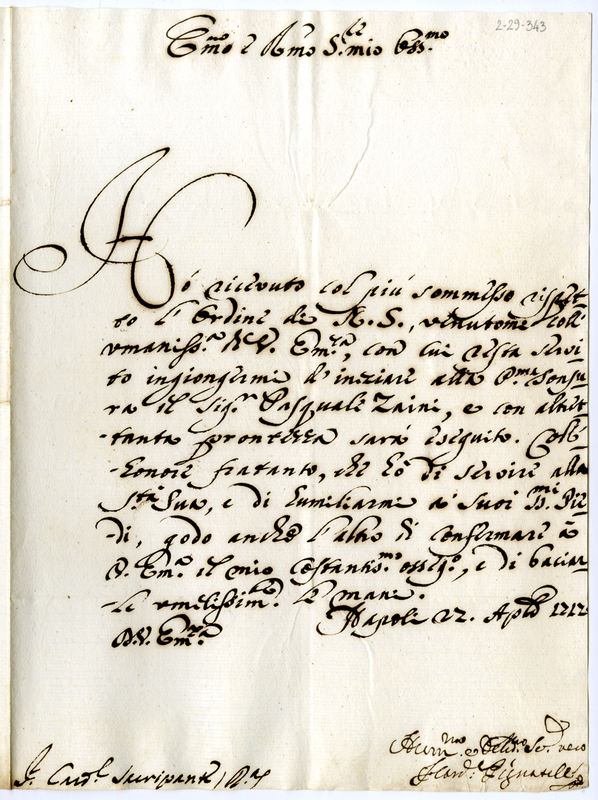 2-29-343
Em.mo e R.mo S.re mio Oss.mo
Hó ricevuto col piú sommesso rispet-
to l'Ordine di N. S., venutome coll'
umaniss.a di V. Em.za, con cui resta servi-
to ingiongermi d'inziare alla P.ma Tonsu-
ra il Sig.r Pasquale Zaini, e con altret-
tanta prontezza sará eseguito. Coll'
honore fratanto, che hó di servire alla
S.tà Sua, e di humiliarmi a' suoi SS.mi Pie-
di, godo anche l'altro di confermare à
V. Em.za il mio costantis.mo osseq.o, e di baciar-
le umilissim.te le mani.
Napoli 22. Aple 1712
D.V. Em.za
Hum.mo e Devo.mo Se.r vero
F. Card.l Pignatelli
S.r Card.l Sacripante